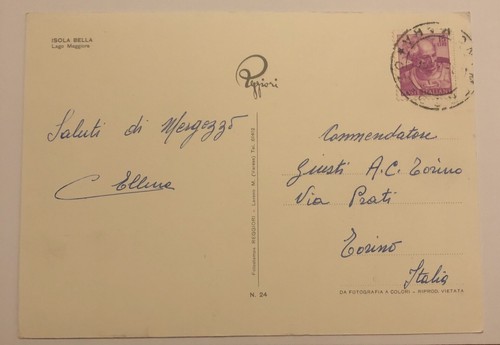 ISOLA BELLA
Lago Maggiore
Reggiori
Saluti di Mergozzo
Ellena
Commendatore
Giusti A.C. Torino
Via Prati
Torino
Italia
Fotoedizione REGGIORI - Laveno M. (Varese) Tel.
N. 24
DA FOTOGRAFIA A COLORI - RIPROD. VIETATA